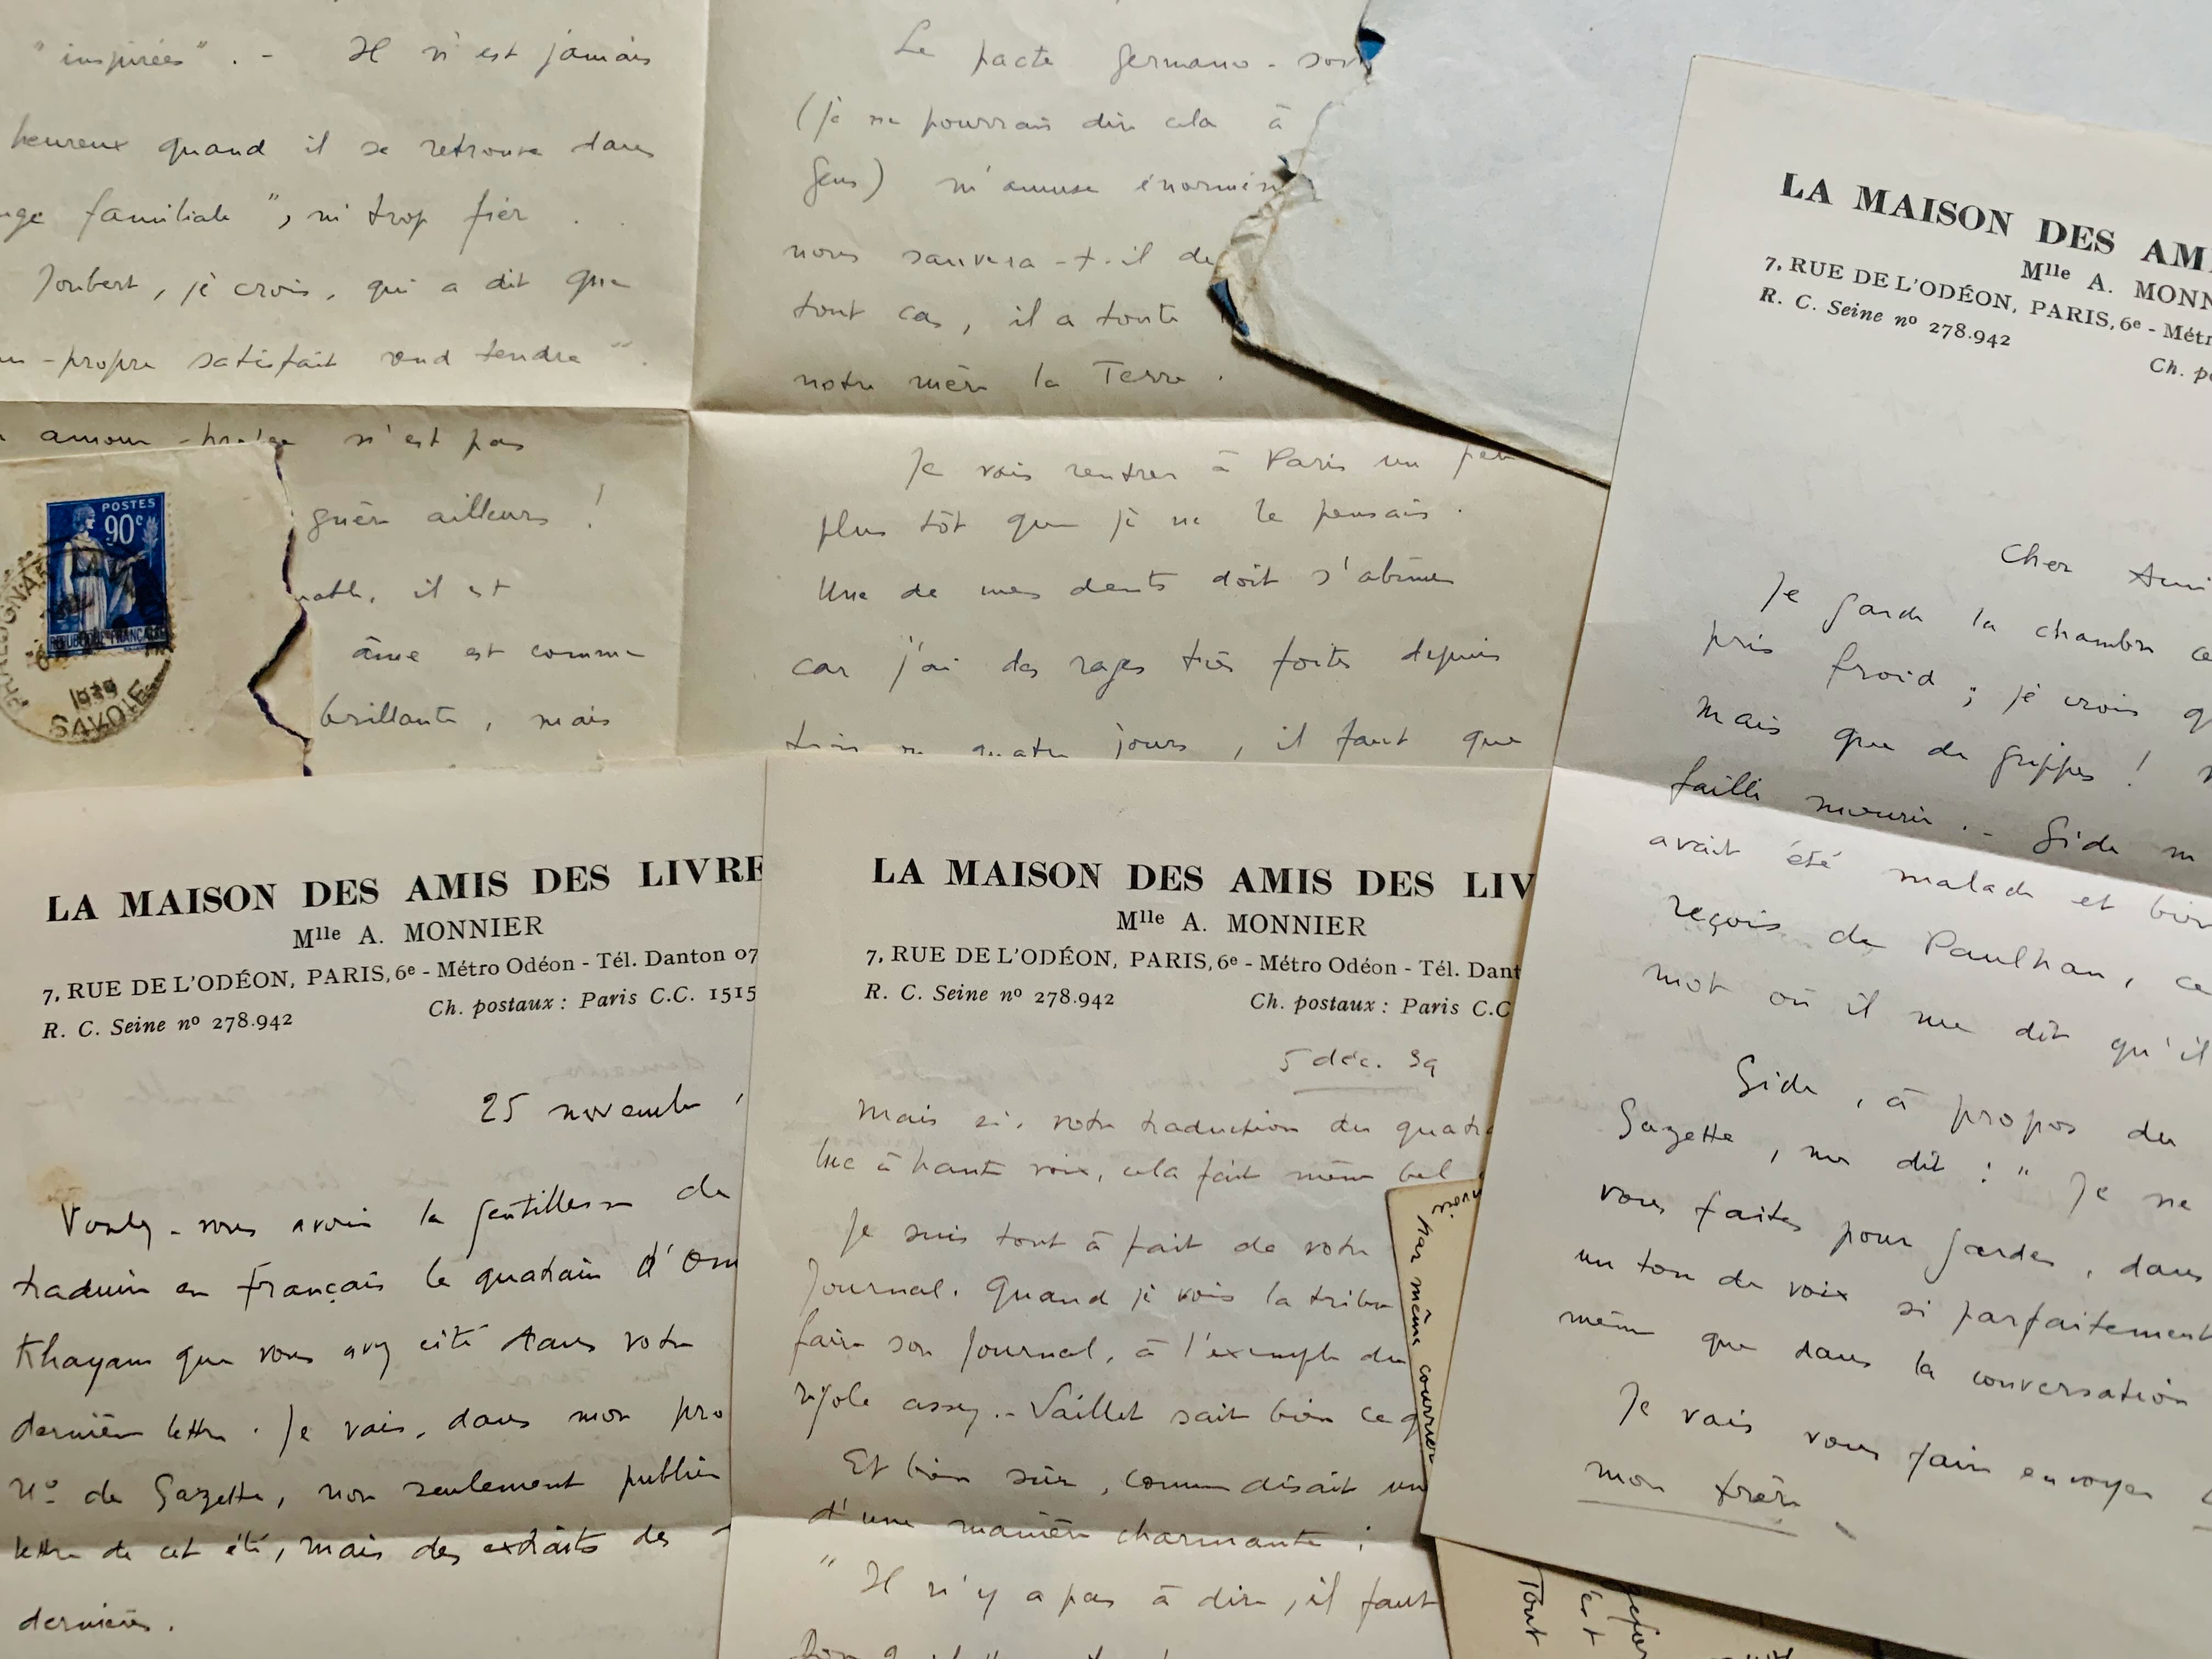 "inspirées". - Il n'est jamais
heureux quand il se retrouve dans
familiale", ni trop fier.
Joubert, je crois, qui a dit que
-propre satisfait rend tendre".
amour-propre n'est pas
guère ailleurs !
il est
âme est comme
brillante, mais
POSTES
90c
REPUBLIQUE FRANÇAISE
PRALOGNAN
1939
SAVOIE
Le pacte germano-sov
(je ne pourrais dire cela à
gens) m'amuse énormém
nous sauvera-t-il de
tout cas, il a toute
notre mère la Terre.
Je vais rentrer à Paris un peu
plus tôt que je ne le pensais.
Une de mes dents doit s'abîmer
car j'ai des rages très fortes depuis
trois ou quatre jours, il faut que
LA MAISON DES AMI
Mlle A. MONN
7, RUE DE L'ODÉON, PARIS, 6e - Métr
R. C. Seine no 278.942
Ch. p
Cher Ami
Je garde la chambre ce
pris froid ; je crois q
mais que de grippes !
failli mourir. - Gide m
avait été malade et bien
reçois de Paulhan, ce
mot où il me dit qu'il
Gide, à propos du
Gazette, me dit : "Je ne
vous faites pour garder, dans
un ton de voix si parfaitement
même que dans la conversation
Je vais vous faire envoyer
mon frère
LA MAISON DES AMIS DES LIVRE
Mlle A. MONNIER
7, RUE DE L'ODÉON, PARIS, 6e - Métro Odéon - Tél. Danton 07
Ch. postaux : Paris C.C. 1515
R. C. Seine no 278.942
25 novembre
Voulez-vous avoir la gentillesse de
traduire en français le quatrain d'Om
Khayam que vous avez cité dans votre
dernière lettre. Je vais, dans mon pro
No de Gazette, non seulement publier
lettre de cet été, mais des extraits des
dernières.
LA MAISON DES AMIS DES LIV
Mlle A. MONNIER
7, RUE DE L'ODÉON, PARIS, 6e - Métro Odéon - Tél. Dant
R. C. Seine no 278.942
Ch. postaux : Paris C.C
5 déc. 39
Mais si, votre traduction du quatr
lue à haute voix, cela fait même bel
Je suis tout à fait de votre
Journal. Quand je vois la tribu
faire son Journal, à l'exemple du
rigole assez. - Saillet sait bien ce q
Et bien sûr, comme disait un
d'une manière charmante :
"Il n'y a pas à dire, il faut
par même courrier
Tout
est